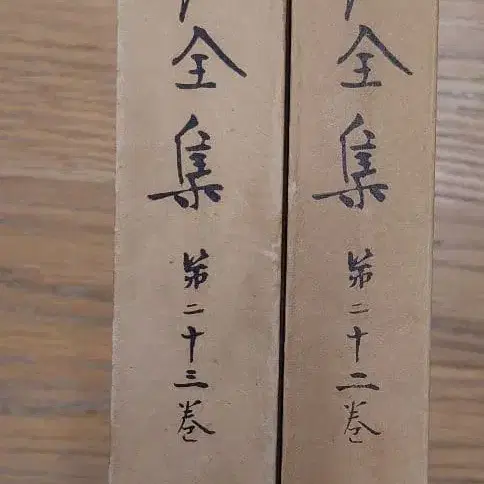 全集第二十三巻
全集第二十二巻